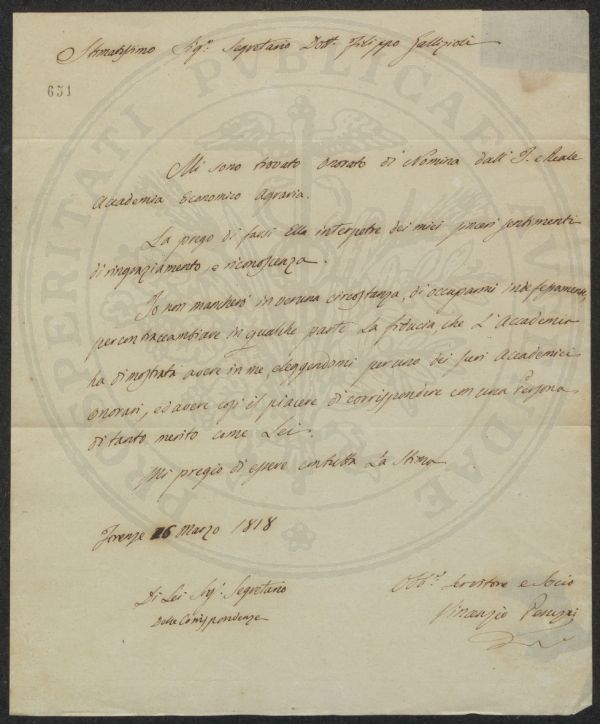 Stimatissimo Sig.r Segretario Dott. Filippo Gallizioli
631
Mi sono trovato onorato di Nomina dall' I. e Reale
Accademia Economico Agraria.
La prego di farsi Ella interpetre dei miei sinceri sentimenti
di ringraziamento, e riconoscenza.
Io non mancherò in veruna circostanza, di occuparmi indefessamente,
per contraccambiare in qualche parte la fiducia, che L'Accademia
ha dimostrata avere in me, eleggendomi per uno dei suoi Accademici
onorari, ed avere così il piacere di corrispondere con una Persona
di tanto merito come Lei.
Mi pregio di essere con tutta La Stima
Firenze 26 Marzo 1818
Di Lei Sig.r Segretario
Delle Corrispondenze
Obb.o Servitore e Socio
Vincenzio Peruzzi
PROSPERITATI PUBLICAE AUGENDAE